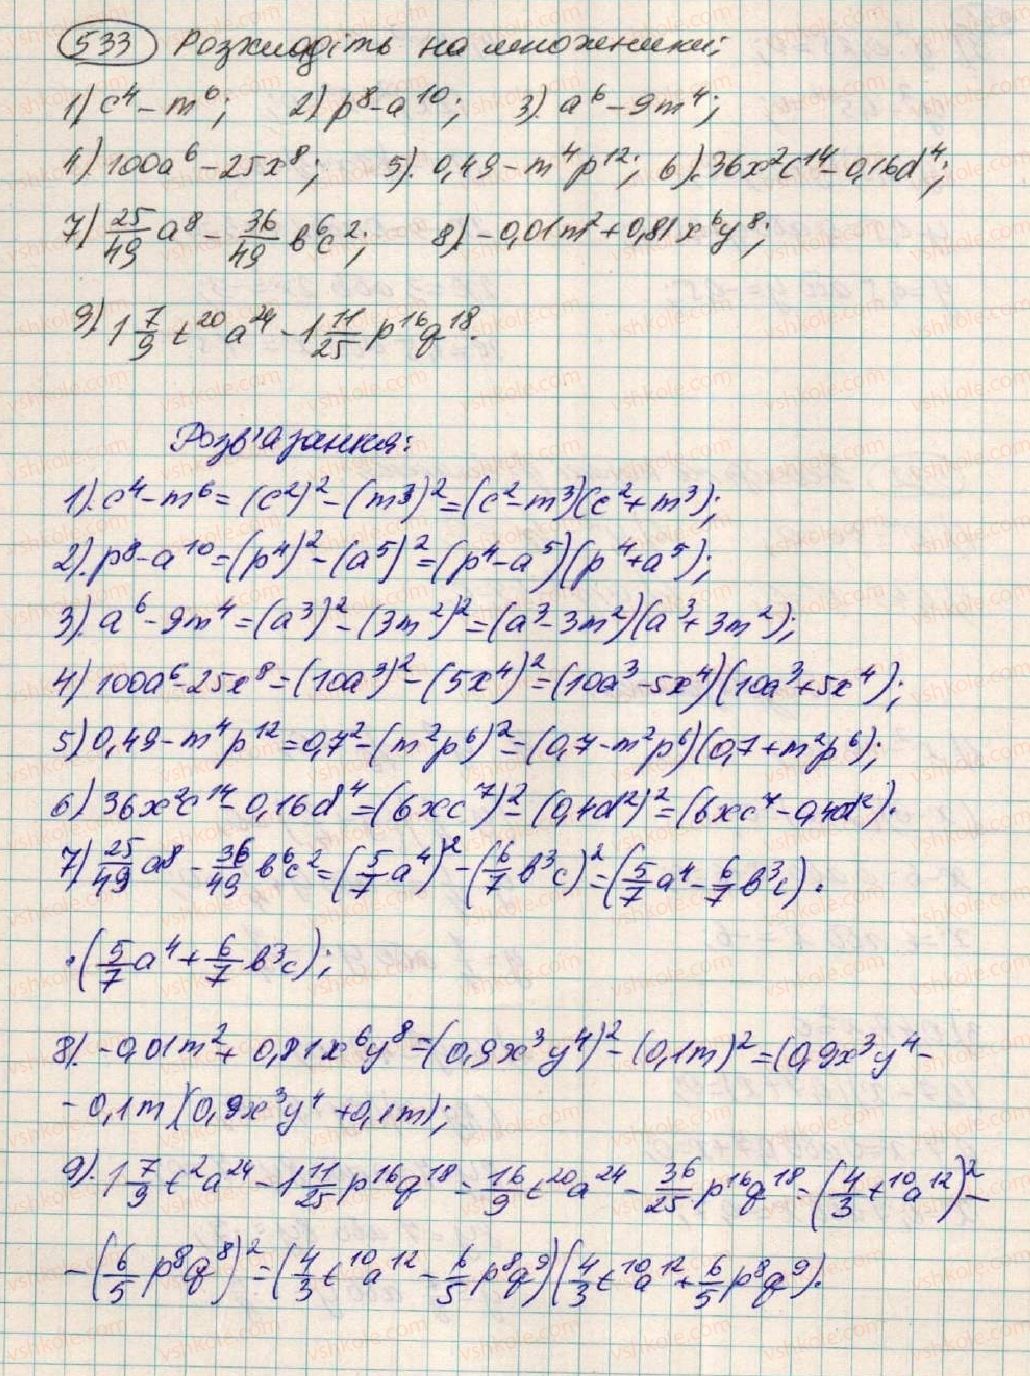 533 Розкладіть на множники:
1) c⁴ - m⁶; 2) p⁸ - a¹⁰; 3). a⁶ - 9m⁴;
4). 100a⁶ - 25x⁸; 5). 0,49 - m⁴p¹²; 6). 36x²c¹⁴ - 0,16d⁴;
7) 25/49 a⁸ - 36/49 b⁶c²; 8) -0,01m² + 0,81x⁶y⁸;
9) 1 7/9 t²⁰a²⁴ - 1 11/25 p¹⁶q¹⁸.
Розв'язання:
1). c⁴ - m⁶ = (c²)² - (m³)² = (c² - m³)(c² + m³);
2). p⁸ - a¹⁰ = (p⁴)² - (a⁵)² = (p⁴ - a⁵)(p⁴ + a⁵);
3). a⁶ - 9m⁴ = (a³)² - (3m²)² = (a³ - 3m²)(a³ + 3m²);
4) 100a⁶ - 25x⁸ = (10a³)² - (5x⁴)² = (10a³ - 5x⁴)(10a³ + 5x⁴);
5) 0,49 - m⁴p¹² = 0,7² - (m²p⁶)² = (0,7 - m²p⁶)(0,7 + m²p⁶);
6) 36x²c¹⁴ - 0,16d⁴ = (6xc⁷)² - (0,4d²)² = (6xc⁷ - 0,4d²).
7) 25/49 a⁸ - 36/49 b⁶c² = (5/7 a⁴)² - (6/7 b³c)² = (5/7 a⁴ - 6/7 b³c) ·
· (5/7 a⁴ + 6/7 b³c);
8). -0,01m² + 0,81x⁶y⁸ = (0,9x³y⁴)² - (0,1m)² = (0,9x³y⁴ -
- 0,1m)(0,9x³y⁴ + 0,1m);
9). 1 7/9 t²a²⁴ - 1 11/25 p¹⁶q¹⁸ = 16/9 t²⁰a²⁴ - 36/25 p¹⁶q¹⁸ = (4/3 t¹⁰a¹²)² -
- (6/5 p⁸q⁸)² = (4/3 t¹⁰a¹² - 6/5 p⁸q⁹)(4/3 t¹⁰a¹² + 6/5 p⁸q⁹).
vshkole.com